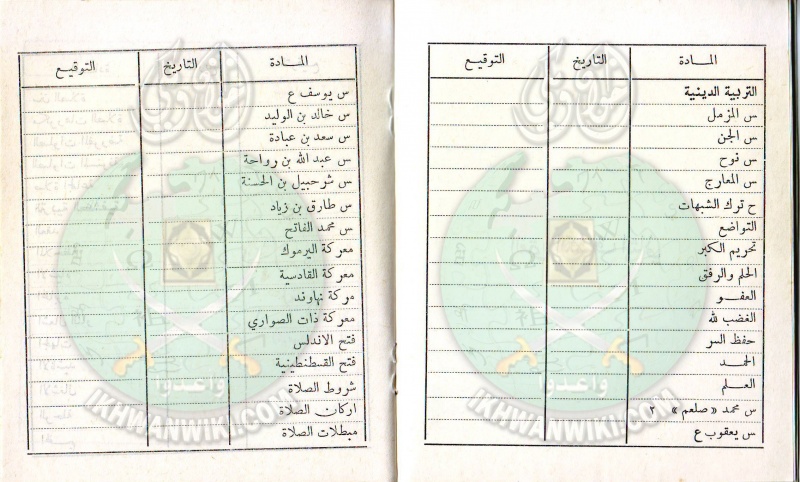 المادة التاريخ التوقيع
التربية الدينية
س المزمل
س الجن
س نوح
س المعارج
ح ترك الشبهات
التواضع
تحريم الكبر
الحلم والرفق
العفـو
الغضب لله
حفظ السر
الحمد
العلم
س محمد «صلعم» ٢
س يعقوب ع
المادة التاريخ التوقيع
س يوسف ع
س خالد بن الوليد
س سعد بن عبادة
س عبد الله بن رواحة
س شرحبيل بن الحسنة
س طارق بن زياد
س محمد الفاتح
معركة اليرموك
معركة القادسية
مركة نهاوند
معركة ذات الصواري
فتح الاندلس
فتح القسطنطينية
شروط الصلاة
اركان الصلاة
مبطلات الصلاة
واعدوا
IKHWANWIKI.COM
واعدوا
IKHWANWIKI.COM